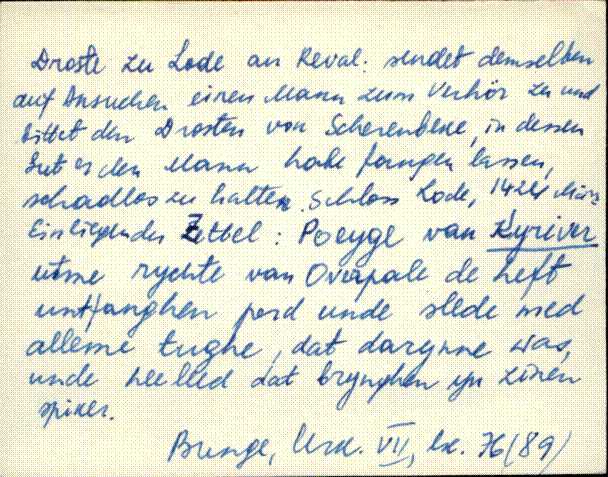 Droste zu Lode an Reval: sendet demselben
auf Ansuchen einen Mann zum Verhör zu und
bittet den Drosten von Scherenbeke, in dessen
Gut er den Mann habe fangen lassen,
schadlos zu halten. Schloss Lode, 1424 März
Einliegender Zettel: Poeyge van Kyriver
utme rychte van Overpale de heft
untfanghen perd unde slede med
alleme tughe, dat darynne was,
unde heelled dat brynghen yn zinen
spiker.
Bunge, Urk. VII, lk. 76 (89)